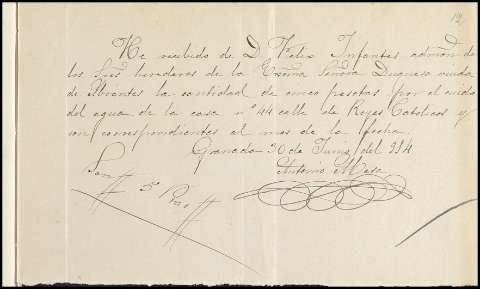 12
He recibido de D. Felix Infantes admon. de
los Sres. herederos de la Excma. Señora Duquesa viuda
de Abrantes la cantidad de cinco pesetas por el cuido
del agua de la casa nº 44 calle de Reyes Catolicos y
son correspondientes al mes de la fecha.
Granada 30 de Junio del 914
Antonio Mesa
Son # 5 Ptas #